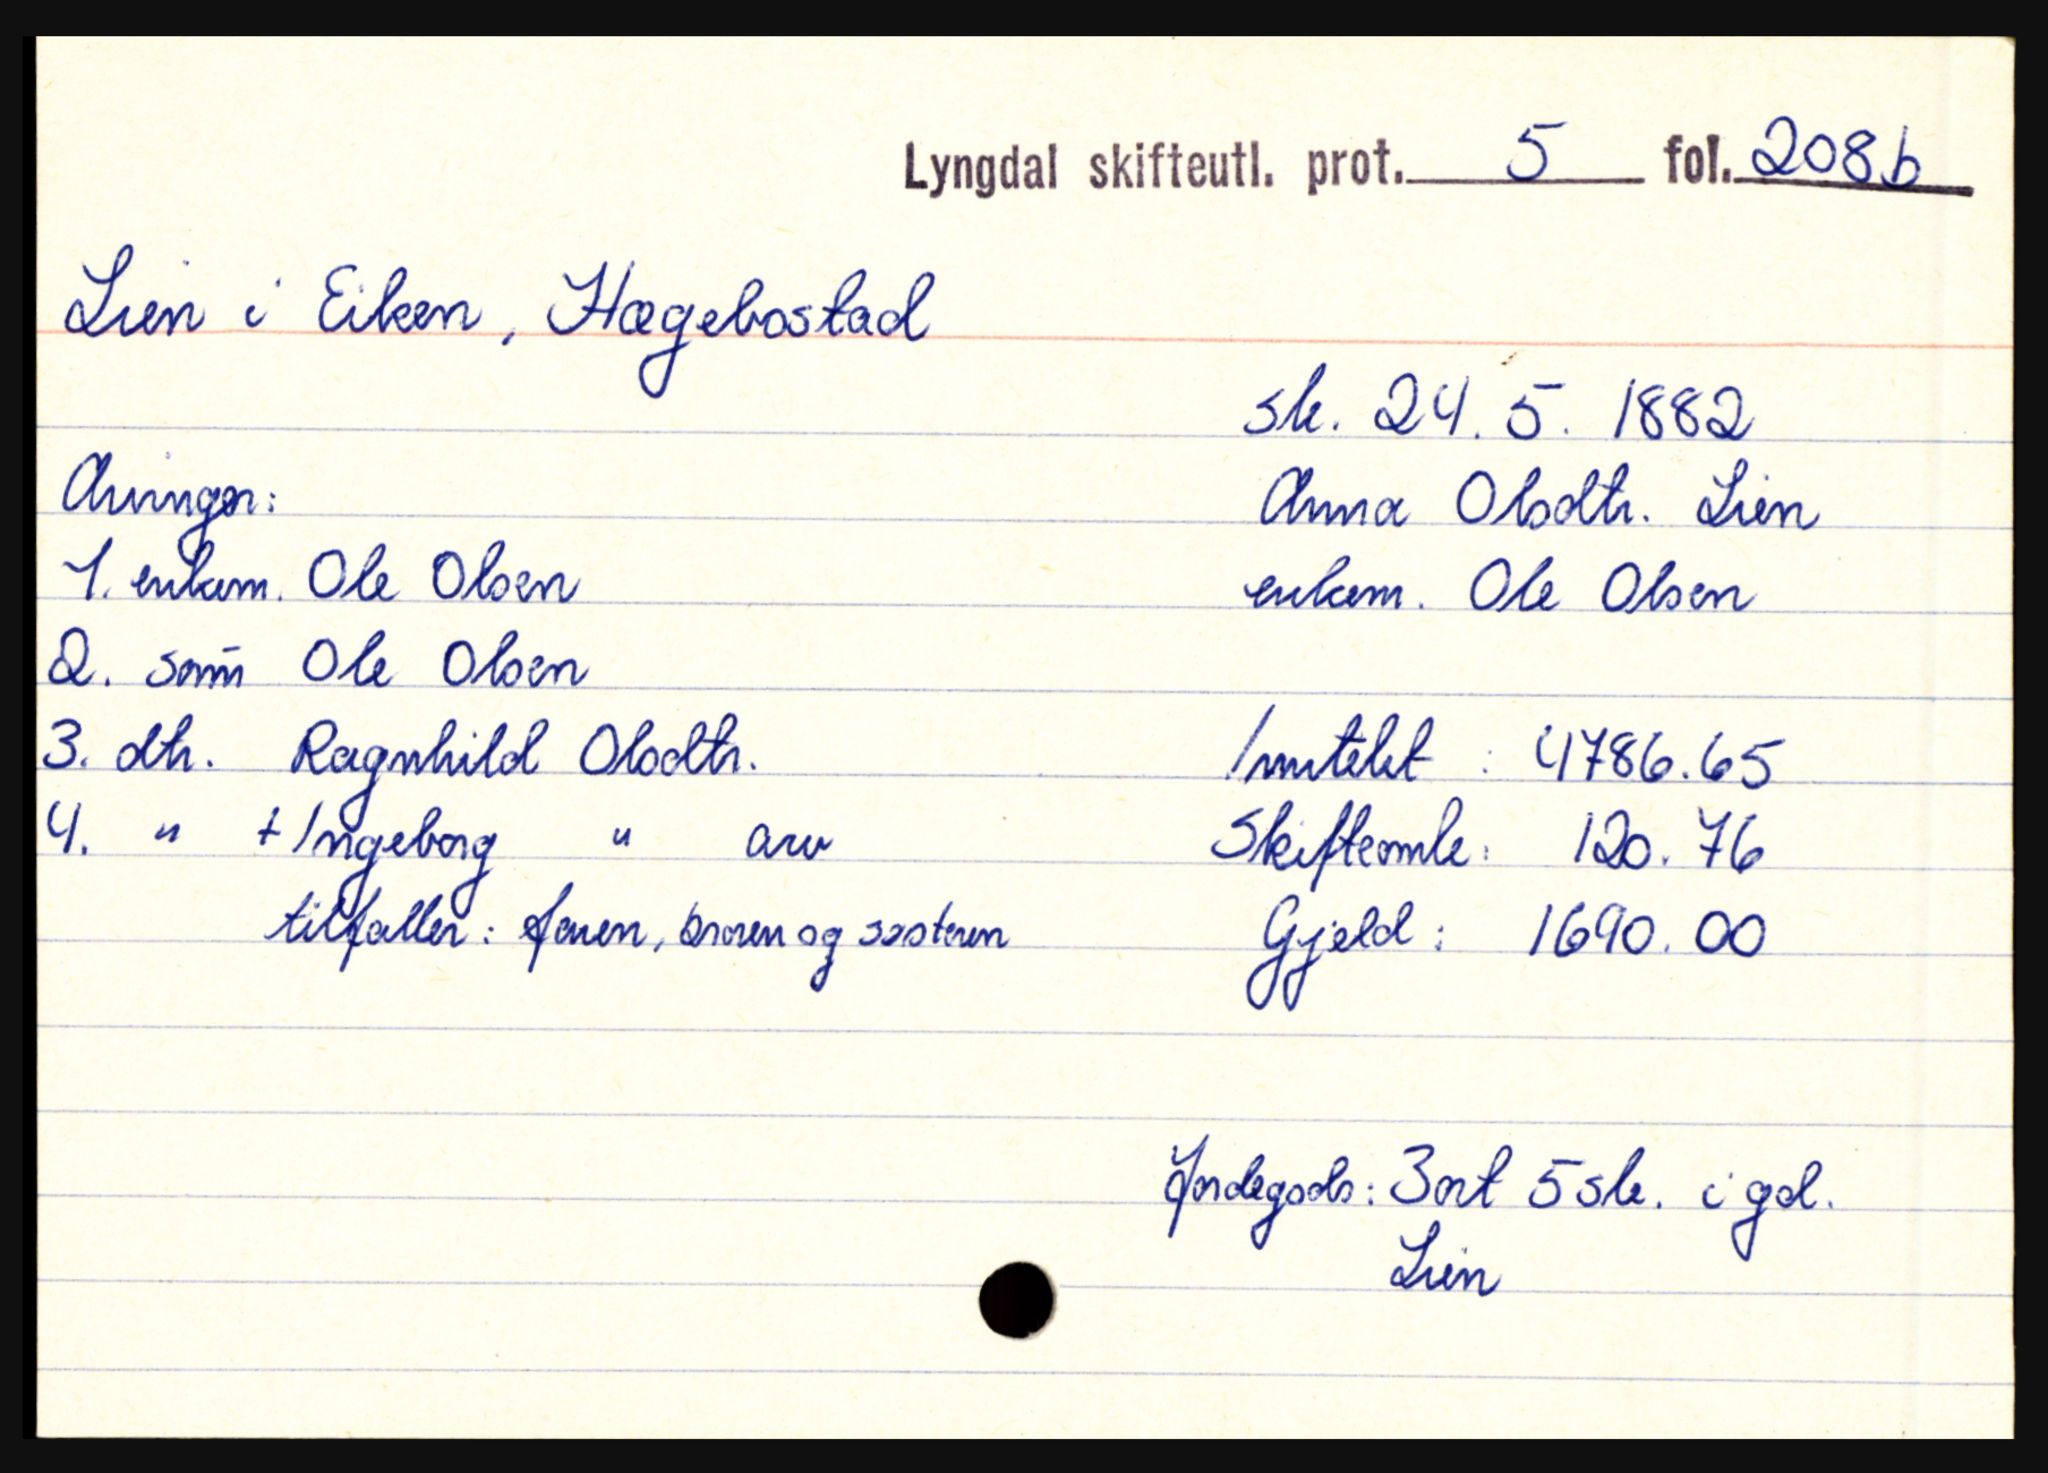 Lyngdal skifteutl. prot. 5 fol. 208b
Lien i Eiken, Hægebostad
sk. 24.5.1882
Anna Olsdtr. Lien
enkem. Ole Olsen
Arvinger:
1. enkem. Ole Olsen
2. sønn Ole Olsen
3. dtr. Ragnhild Olsdtr.
4. " + Ingeborg " arv
tilfaller: faren, broren og søsteren
Inntekt : 4786.65
Skifteomk: 120.76
Gjeld : 1690.00
Jordegods: 3 ort 5 sk. i gd.
Lien